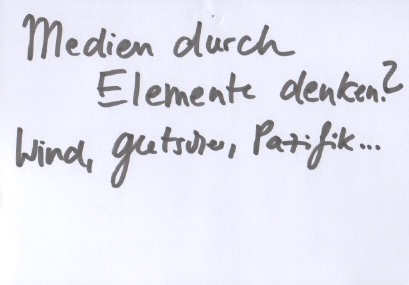 Medien durch
Elemente denken?
Wind, Gletscher, Pazifik...